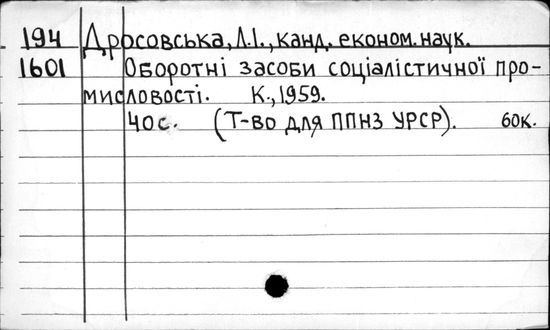 194 Дросовська, Л.І., канд. економ. наук.
1601 Оборотні засоби соціалістичної про-
мисловості. К., 1959.
40с. (Т-во для ППНЗ УРСР). 60к.